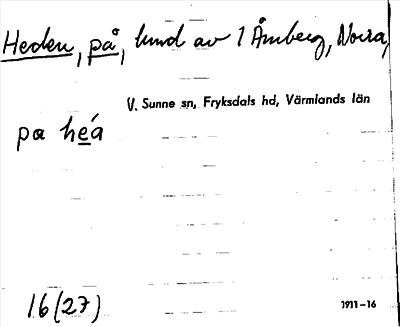 Heden, på, lund av 1 Åmberg, Norra,
V. Sunne sn, Fryksdals hd, Värmlands län
pa heá
16(27)
1911-16